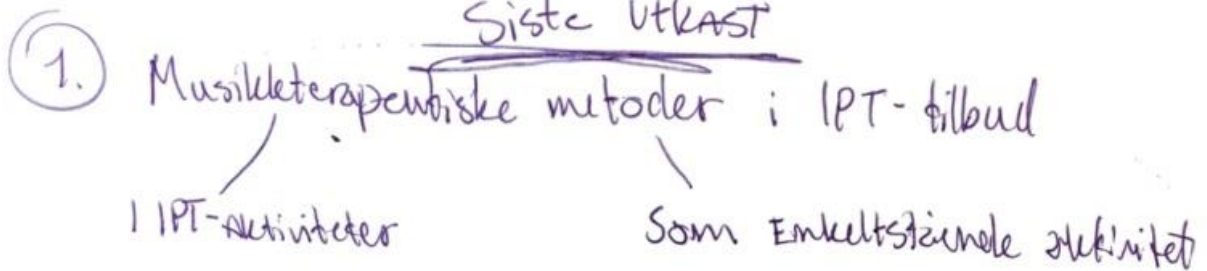 Siste UtkAST
1. Musikkterapeutiske metoder i IPT-tilbud
I IPT-Aktiviteter Som Enkeltstående aktivitet